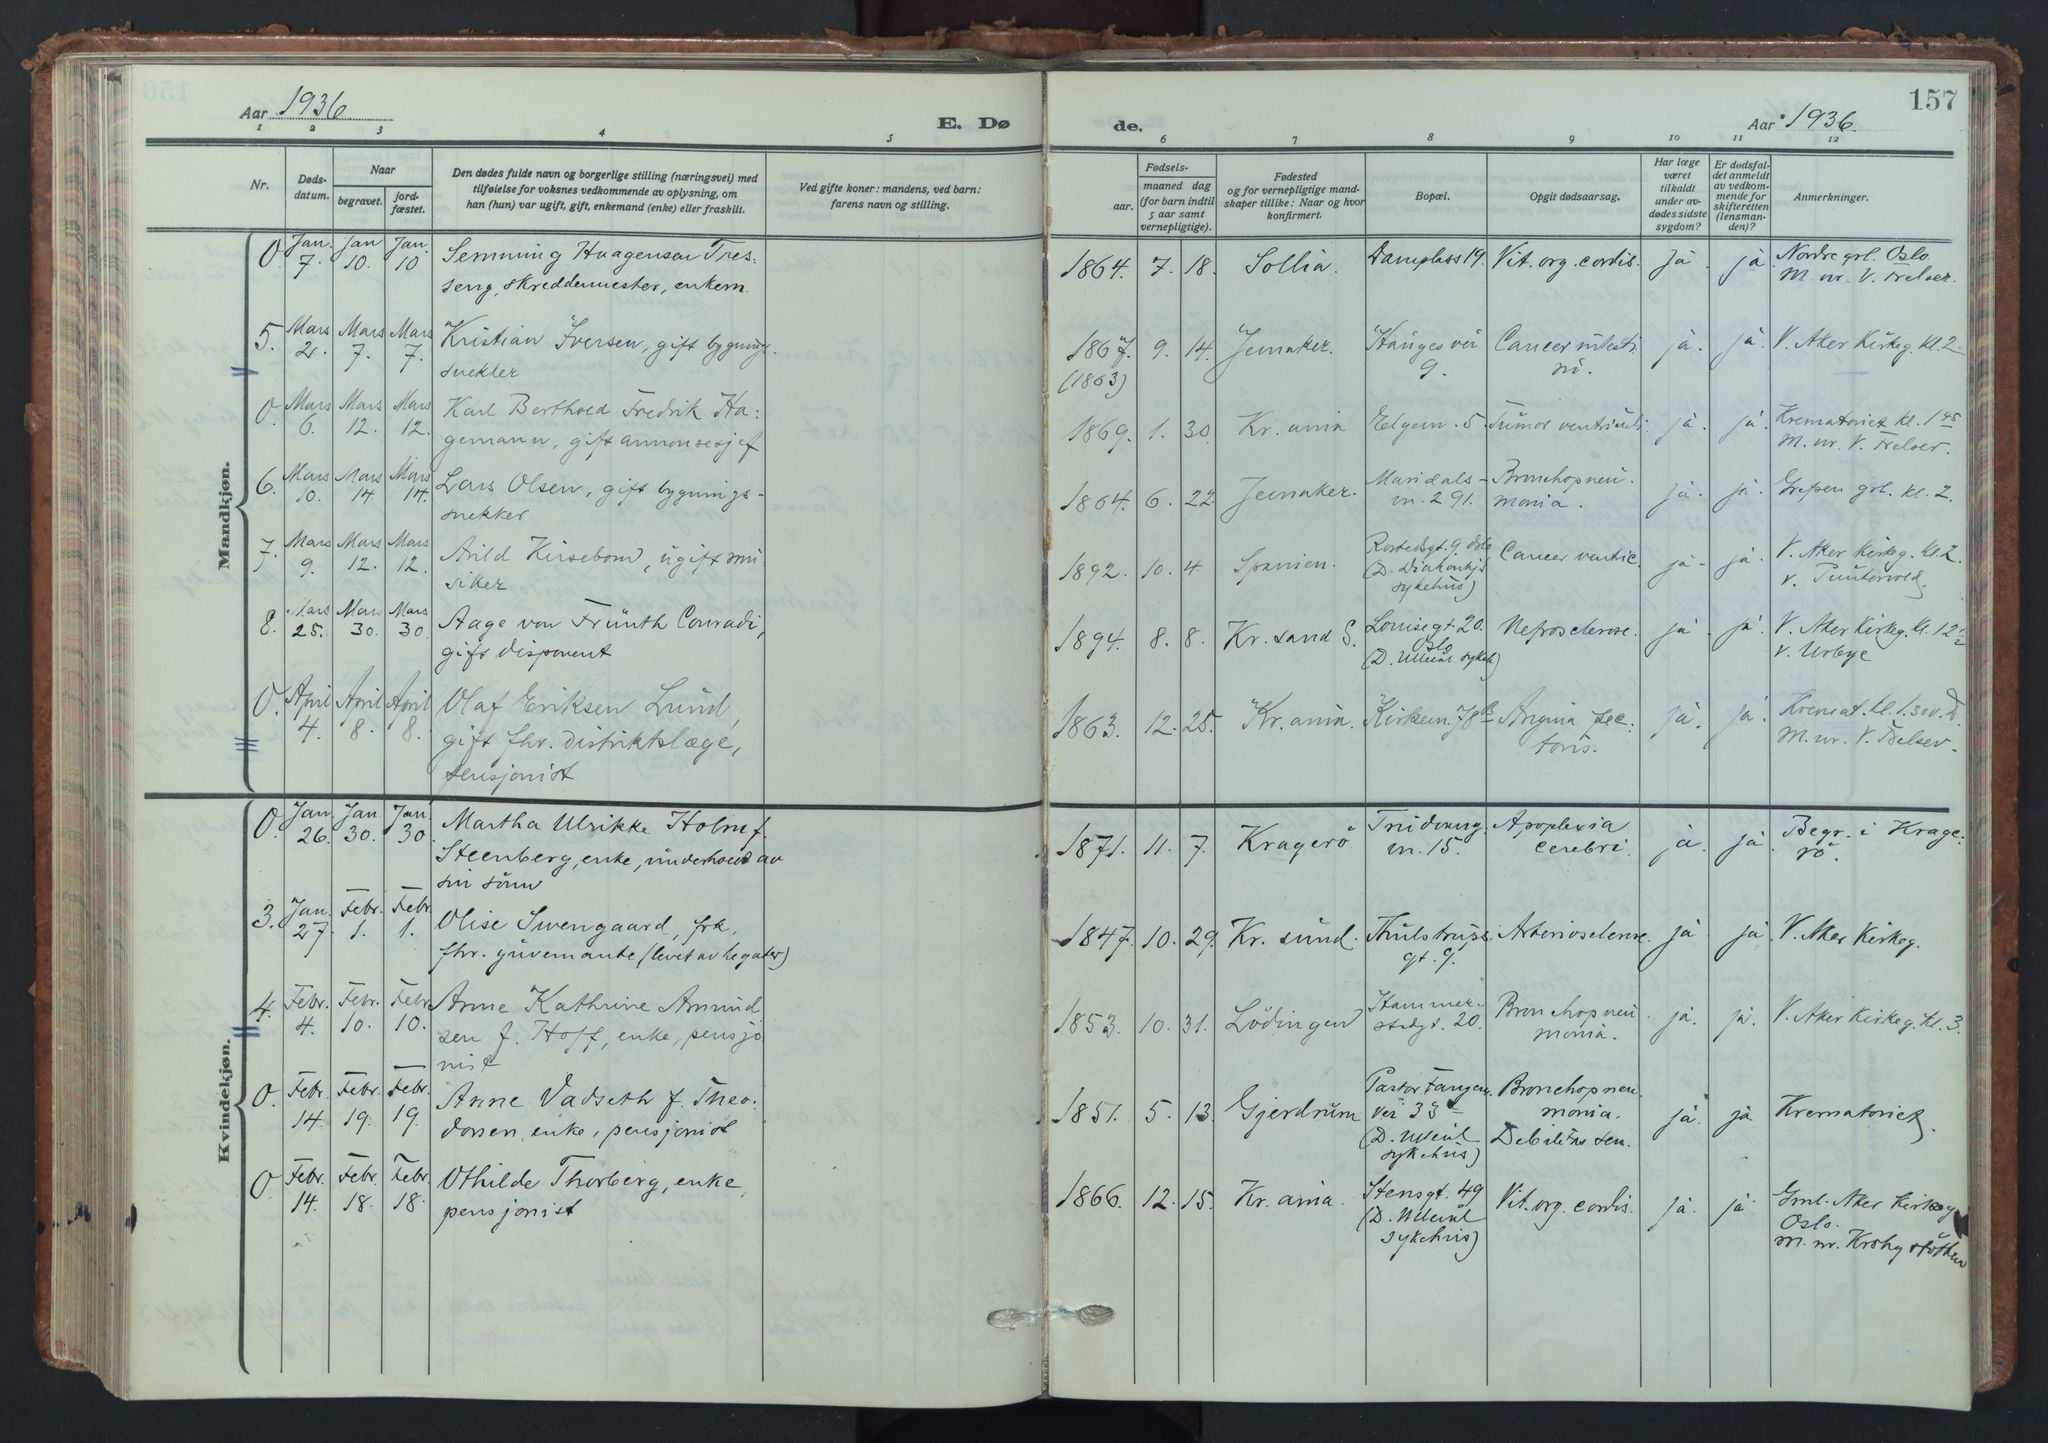 157
Aar 1936. E. Dø de. Aar 1936.
1 2 3 4 5 6 7 8 9 10 11 12
Nr.
Døds-
datum.
Naar
begravet.
jord-
fæstet.
Den dødes fulde navn og borgerlige stilling (næringsvei) med
tilføielse for voksnes vedkommende av oplysning, om
han (hun) var ugift, gift, enkemand (enke) eller fraskilt.
Ved gifte koner: mandens, ved barn:
farens navn og stilling.
Fødsels-
aar.
maaned dag
(for barn indtil
5 aar samt
vernepligtige).
Fødested
og for vernepligtige mand-
skaper tillike: Naar og hvor
konfirmert.
Bopæl.
Opgit dødsaarsag.
Har læge
været
tilkaldt
under av-
dødes sidste
sygdom?
Er dødsfal-
det anmeldt
av vedkom-
mende for
skifteretten
(lensman-
den)?
Anmerkninger.
Mandkjøn.
0. Jan 7. Jan 10. Jan 10 Semming Haagensen Tres-
seng, skreddemester, enkem.
1864. 7. 18. Sollia. Damplass 19. Vit. org. cordis. Ja. ja. Nordre grl. Oslo
M. nr. V. Trelser.
5. Mars 2. Mars 7. Mars 7. Kristian Iversen, gift bygnings-
snekker
1867. (1863) 9. 14. Jevnaker. Hauges vei
9. Cancer intesti
ni. ja. ja. V. Aker Kirkeg. kl. 2
0. Mars 6. Mars 12. Mars 12. Karl Berthold Fredrik Ha-
gemann, gift annonsesjef
1869. 1. 30. Kr.ania Elgem. 5. Tumor ventriculi. ja. ja. Krematoriet kl. 1 45
M. nr. V. Trelser.
6. Mars 10. Mars 14. Mars 14. Lars Olsen, gift bygnings-
snekker
1864. 6. 22. Jevnaker. Maridals-
v. 291. Bronchopneu
monia. ja. ja. Grefsen grl. kl. 2.
7. Mars 9. Mars 12. Mars 12. Arild Kirsebom, ugift mu
siker
1892. 10. 4. Spanien. Rostedsgt. 9 Oslo
(D. Diakonhj.
sykehus) Cancer ventric. ja. ja. V. Aker Kirkeg. kl. 2
v. Tunterwold.
8. Mars 25. Mars 30. Mars 30. Aage von Früuth Conradi,
gift disponent
1894. 8. 8. Kr.sand S. Louisegt 20.
Oslo
(D. Ullevål sykeh.) Nefrosclerose. ja. ja. V. Aker Kirkeg. kl. 12 1/2
v. Urbye
0. April 4. April 8. April 8. Olaf Eriksen Lund,
gift fhv. distriktslæge,
pensjonist
1863. 12. 25. Kr.ania. Kirkev. 78 b Angina pec
toris. ja. ja. Kremat. kl. 1.30 v. D.
M. nr. V. Trelser.
Kvindekjøn.
0. Jan 26. Jan 30. Jan. 30 Martha Ulrikke Holm f.
Steenberg, enke, underhold av
sin sönn
1871. 11. 7. Kragerö Trudvang
v. 15. Apoplexia
cerebri. ja. ja. Begr. i Krage-
rö.
3. Jan. 27. Febr. 1. Febr. 1. Olise Swengaard, frk.
fhv. guvernante (levet av legater)
1847. 10. 29. Kr.sund. Thulstrups
gt. 9. Arteriosclerose. ja ja. V. Aker Kirkeg.
4. Febr. 4. Febr. 10. Febr. 10. Anne Kathrine Amund
sen f. Hoff, enke, pensjo
nist
1853. 10. 31. Lödingen Hammer-
stadgt. 20. Bronchopneu
monia. ja. ja. V. Aker Kirkeg. kl. 3.
0. Febr. 14. Febr. 19. Febr. 19. Anne Vadseth f. Theo-
dorsen, enke, pensjonist
1851. 5. 13. Gjerdrum Pastor Fangens
vei 33
(D. Ullevål
sykehus) Bronchopneu
monia.
Debilitas sen. ja. ja Krematoriet.
0. Febr. 14. Febr. 18. Febr. 18. Othilde Thorberg, enke,
pensjonist
1866. 12. 15. Kr.ania. Stensgt. 49
(D. Ullevål
sykehus) Vit. org. cordis. ja. ja. Gml. Aker Kirkeg
Oslo.
M. nr. Krohg støtten